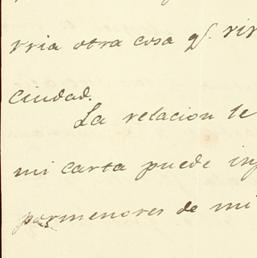 rria otra cosa q.e vir
ciudad.
La relacion te
mi carta puede inf
pormenores de mi